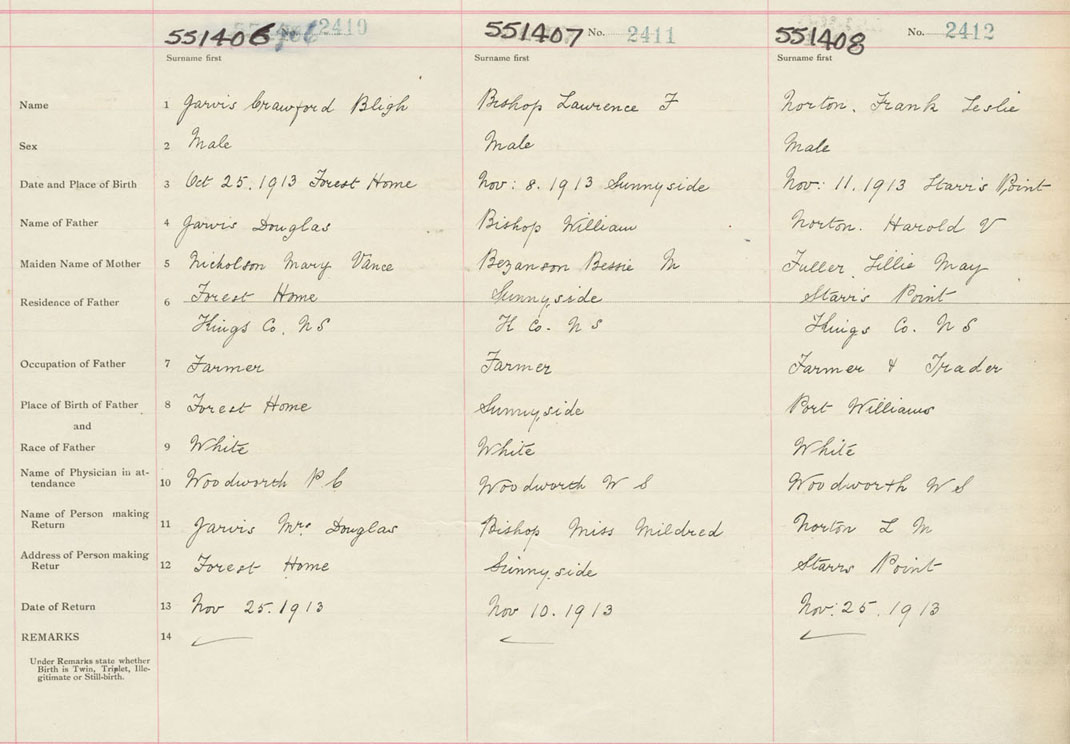 551406 2410 551407 No. 2411 551408 No. 2412
Surname first Surname first Surname first
Name 1 Jarvis Crawford Bligh Bishop Lawrence F Norton. Frank Leslie
Sex 2 Male Male Male
Date and Place of Birth 3 Oct 25. 1913 Forest Home Nov: 8. 1913 Sunnyside Nov: 11. 1913 Starr's Point
Name of Father 4 Jarvis Douglas Bishop William Norton. Harold V
Maiden Name of Mother 5 Nicholson Mary Vance Bezanson Bessie M Fuller Lillie May
Residence of Father 6 Forest Home Sunnyside Starr's Point
Kings Co. N S K Co. N S Kings Co. N S
Occupation of Father 7 Farmer Farmer Farmer & Trader
Place of Birth of Father 8 Forest Home Sunnyside Port Williams
and
Race of Father 9 White White White
Name of Physician in at-
tendance 10 Woodworth P C Woodworth W S Woodworth W S
Name of Person making
Return 11 Jarvis Mrs Douglas Bishop Miss Mildred Norton L M
Address of Person making
Retur 12 Forest Home Sunnyside Starrs Point
Date of Return 13 Nov 25. 1913 Nov 10. 1913 Nov: 25. 1913
REMARKS 14
Under Remarks state whether
Birth is Twin, Triplet, Ille-
gitimate or Still-birth.